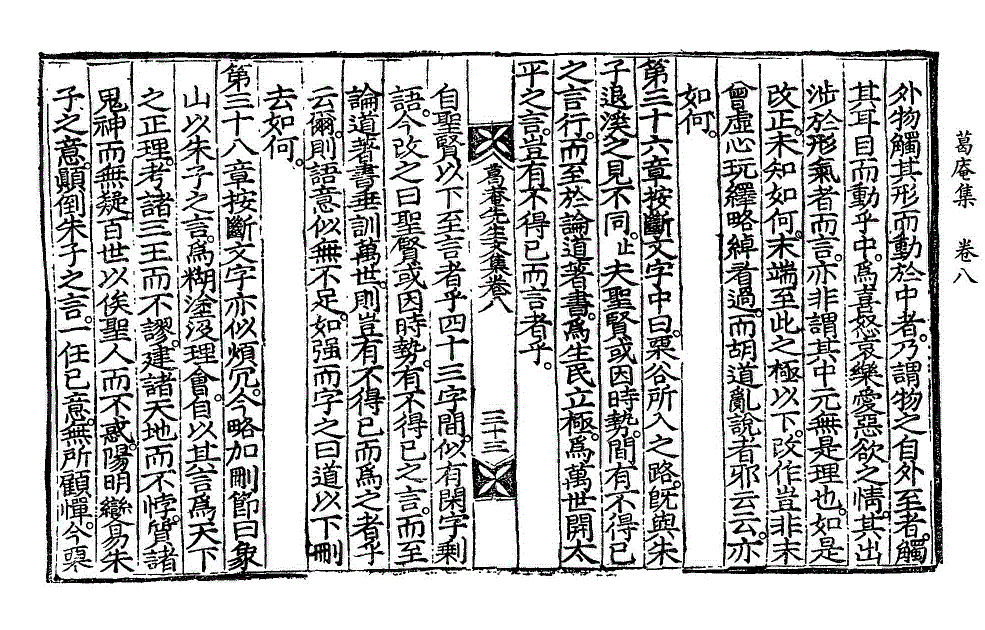 葛庵集　卷八
外物觸其形而動於中者。乃謂物之自外至者。觸
其耳目而動乎中。爲喜怒哀樂愛惡欲之情。其出
涉於形氣者而言。亦非謂其中元無是理也。如是
改正。未知如何。末端至此之極以下。改作豈非未
曾虛心玩繹略綽看過。而胡道亂說者邪云云。亦
如何。
第三十六章按斷文字中曰。栗谷所入之路。旣與朱
子退溪之見不同。止夫聖賢或因時勢。間有不得已
之言行。而至於論道著書。爲生民立極。爲萬世開太
平之言。豈有不得已而言者乎。
葛庵先生文集卷八　三十三
自聖賢以下至言者乎四十三字間。似有閑字剩
語。今改之曰聖賢或因時勢。有不得已之言。而至
論道著書垂訓萬世。則豈有不得已而爲之者乎
云爾。則語意似無不足。如强而字之曰道以下刪
去如何。
第三十八章按斷文字亦似煩冗。今略加刪節曰象
山以朱子之言。爲糊塗沒理會。自以其言爲天下
之正理。考諸三王而不謬。建諸天地而不悖。質諸
鬼神而無疑。百世以俟聖人而不惑。陽明變易朱
子之意。顚倒朱子之言。一任己意。無所顧憚。今栗